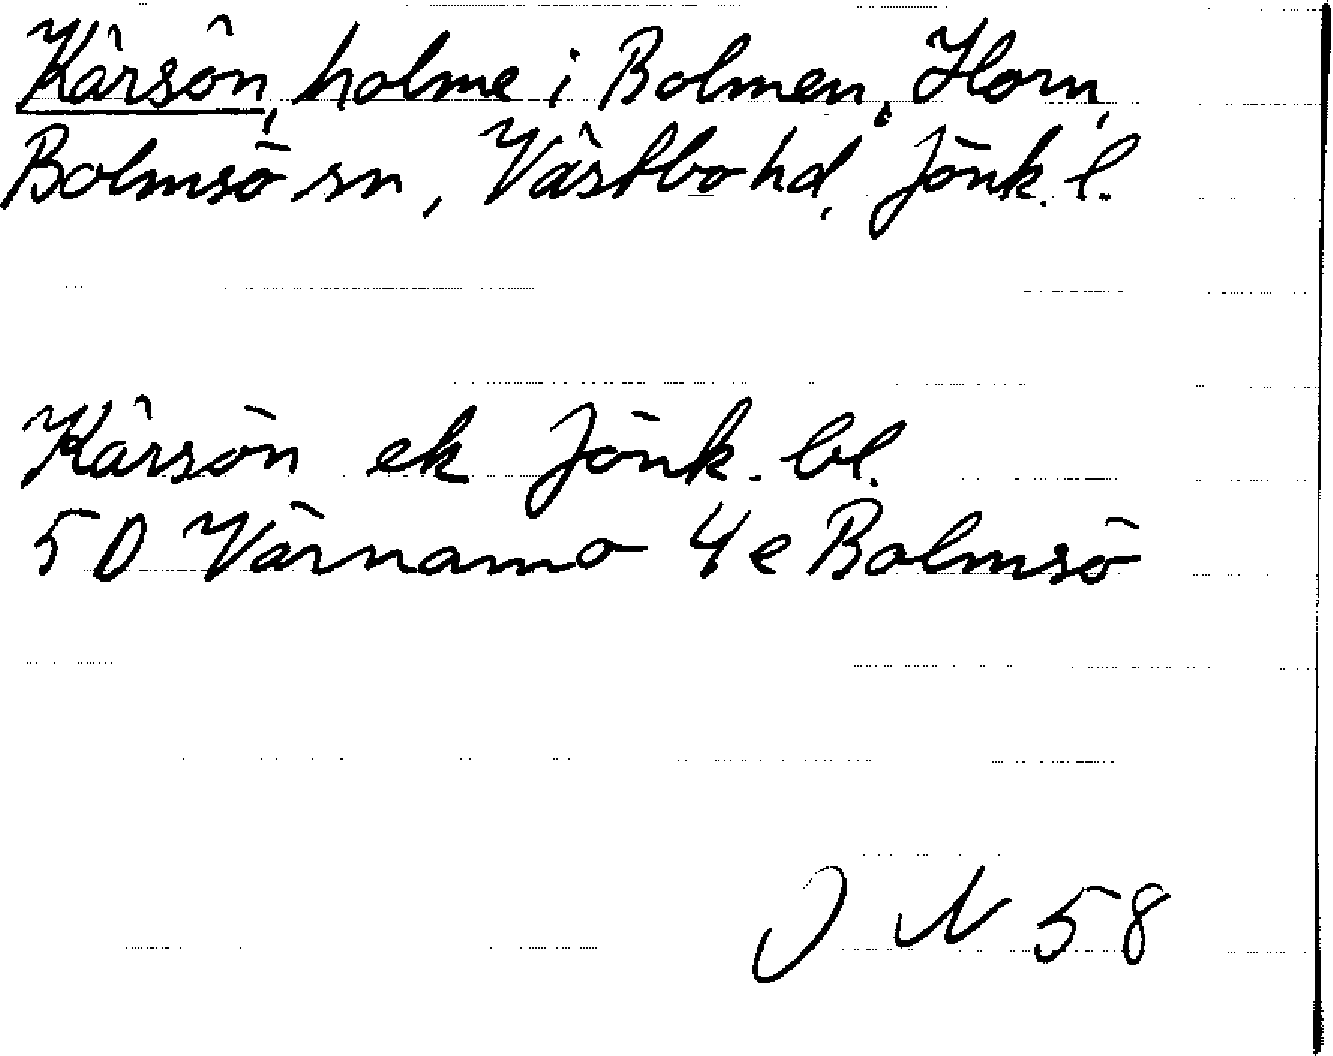 Kärsön, holme i Bolmen, Horn,
Bolmsö sn, Västbo hd, Jönk. l.
Kärsön ek Jönk. bl.
5D Värnamo 4e Bolmsö
J N 58